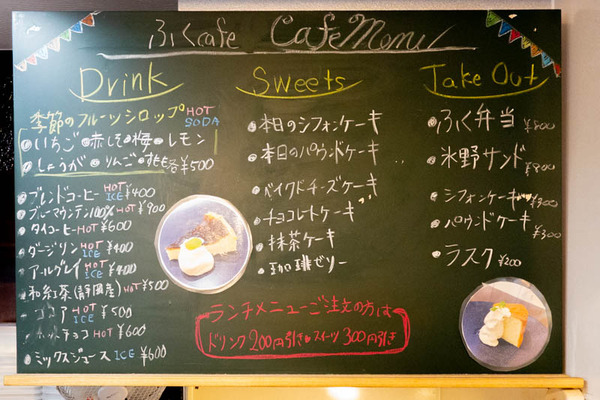 ふくcafe Cafe Menu
Drink
季節のフルーツシロップ HOT SODA
いちご 赤しそ 梅 レモン
しょうが りんご すもも 各¥500
ブレンドコーヒー HOT ICE ¥400
ブルーマウンテン100% HOT ¥900
タイコーヒー HOT ¥600
ダージリン HOT ICE ¥400
アールグレイ HOT ICE ¥400
和紅茶(静岡産) HOT ¥500
ココア HOT ICE ¥500
ホットチョコ HOT ¥600
ミックスジュース ICE ¥600
Sweets
本日のシフォンケーキ
本日のパウンドケーキ
ベイクドチーズケーキ
チョコレートケーキ
抹茶ケーキ
珈琲ゼリー
ランチメニューご注文の方は
ドリンク200円引き スイーツ300円引き
Take Out
ふく弁当 ¥800
氷野サンド ¥900
シフォンケーキ ¥300
パウンドケーキ ¥300
ラスク ¥200